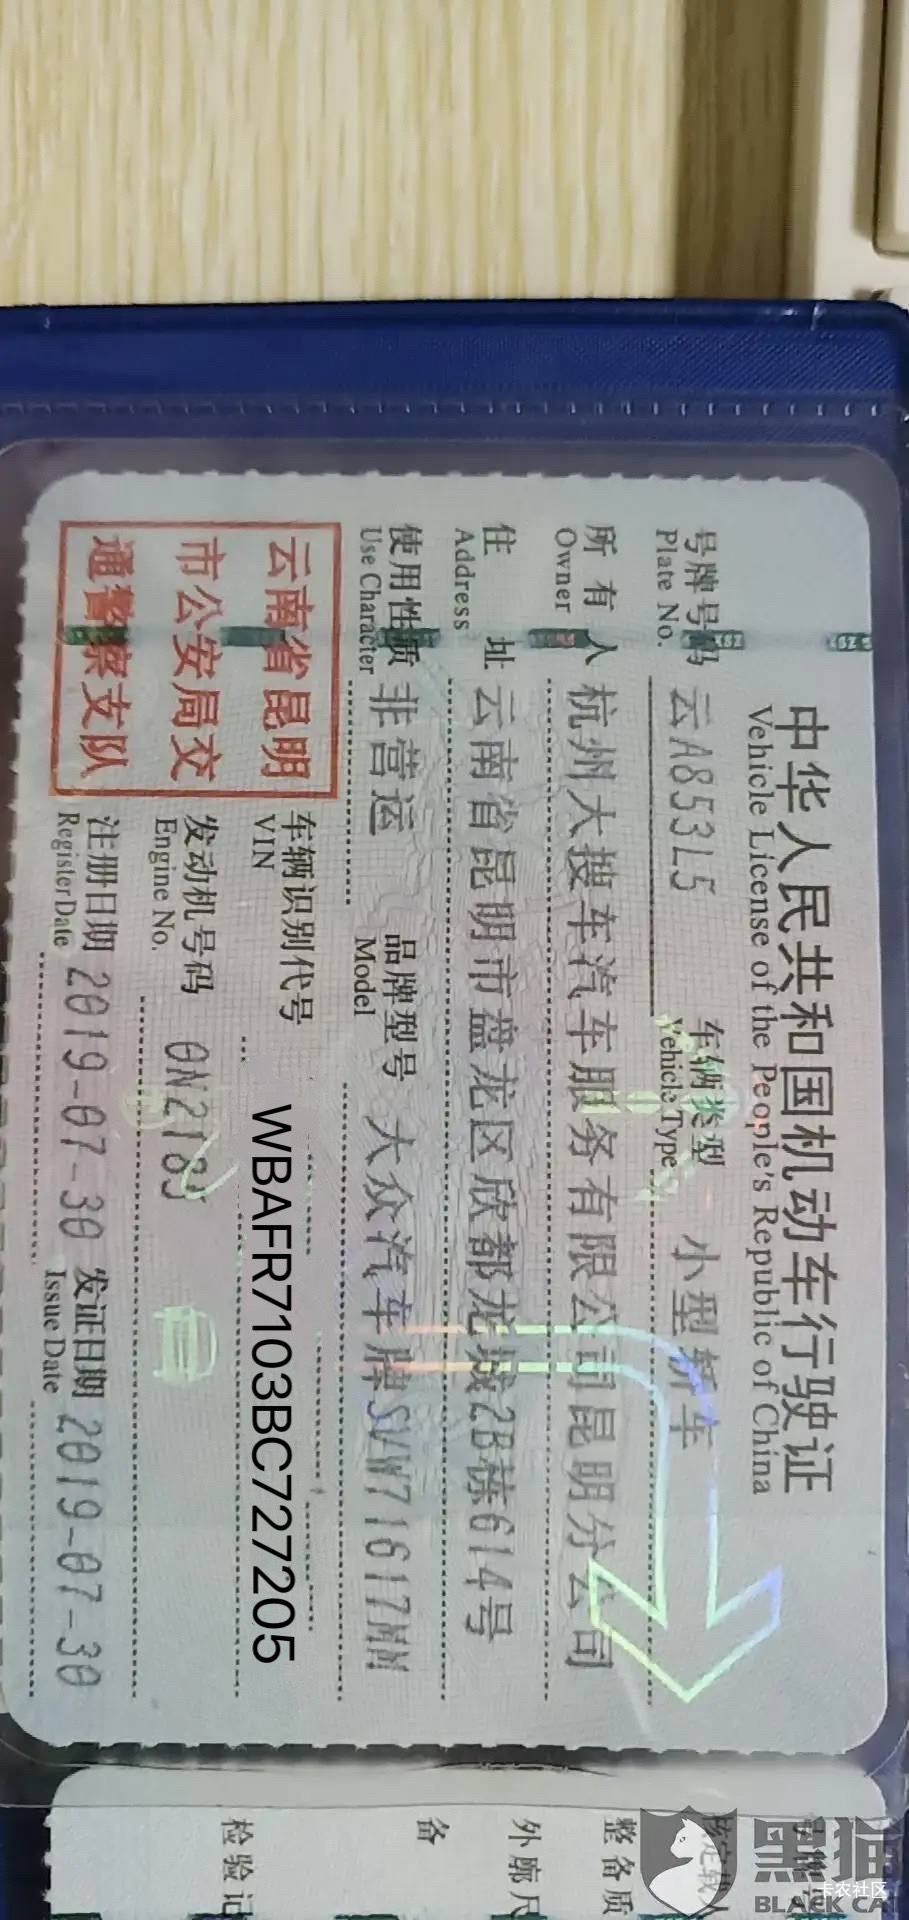 中华人民共和国机动车行驶证
Vehicle License of the People's Republic of China
号牌号码 云A853L5 车辆类型 小型轿车
Plate No. Vehicle Type
所有人 杭州大搜车汽车服务有限公司昆明分公司
Owner
住址 云南省昆明市盘龙区欣都龙城2B栋614号
Address
使用性质 非营运 品牌型号 大众汽车牌SVW71617MM
Use Character Model
云南省昆明
市公安局交
通警察支队
车辆识别代号 WBAFR7103BC727205
VIN
发动机号码
Engine No.
注册日期 2019-07-30 发证日期 2019-07-30
Register Date Issue Date
整备质
外廓尺
备
检验记
黑猫
BLACK CA
卡农社区